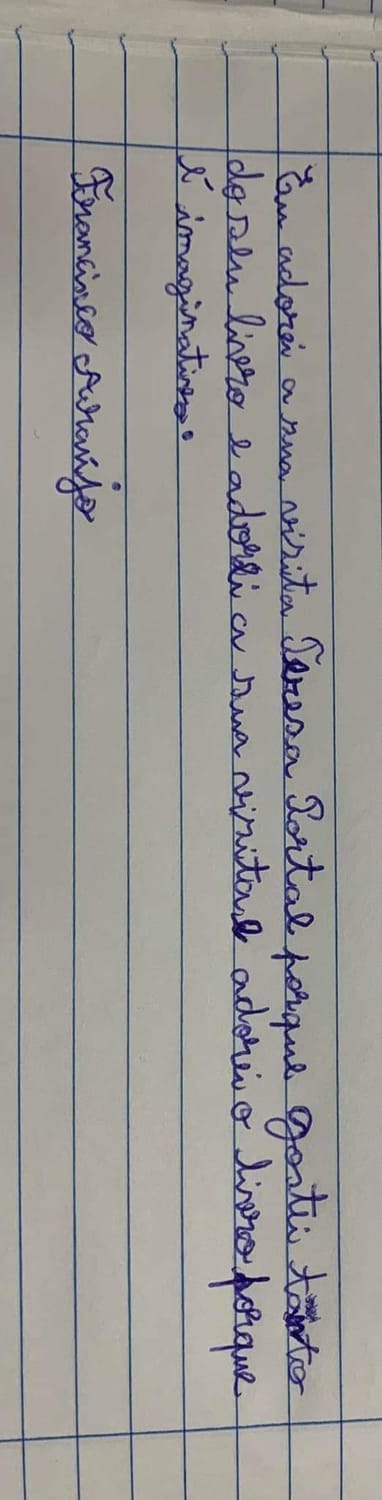 Eu adorei a sua visita Teresa Portal porque gostei tanto
do seu livro e adorei a sua visita e adorei o livro porque
é imaginativo.
Francisco Araújo